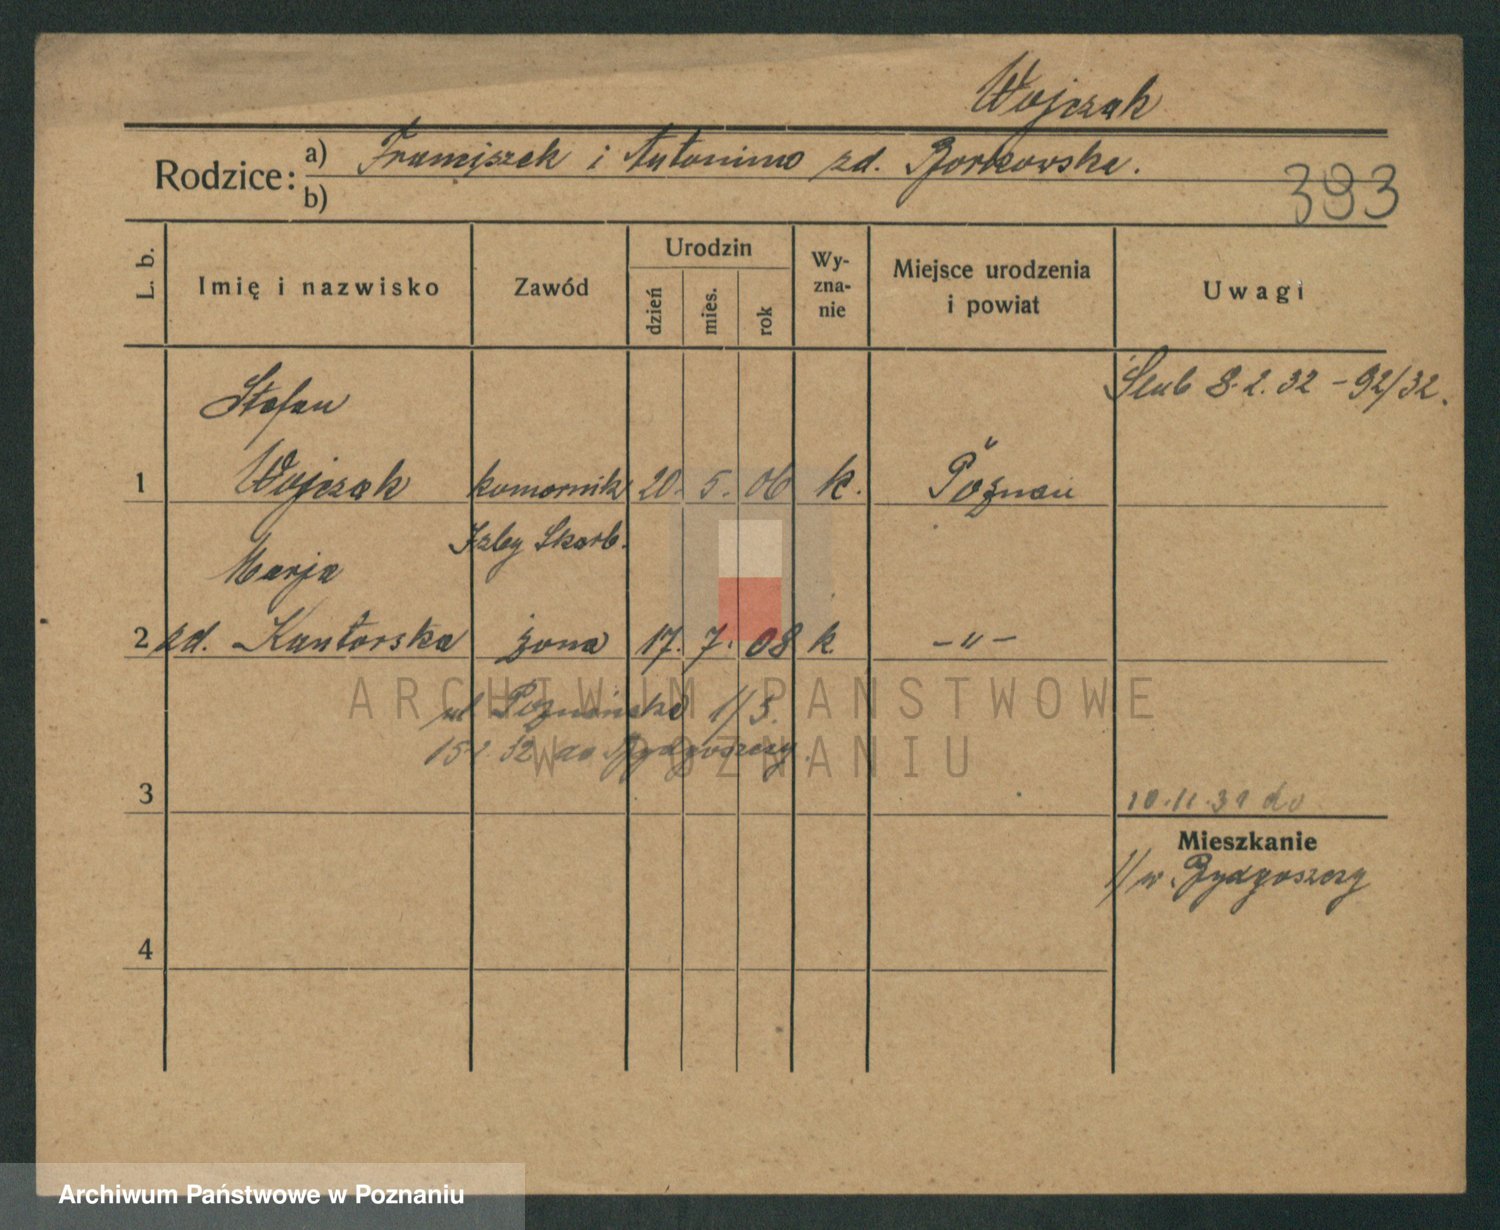 Wojczak
Rodzice:
a) Franciszek i Antonina zd. Borkowska.
b)
393
L. b.
Imię i nazwisko
Zawód
Urodzin
dzień
mies.
rok
Wy-
zna-
nie
Miejsce urodzenia
i powiat
Uwagi
Ślub 8.2.32 – 92/32.
Stefan
1 Wojczak komornik 20. 5. 06 k. Poznań
Izby Skarb.
Marja
2 zd. Kantorska żona 17. 7. 08 k. –"–
ul. Poznańska 1/3.
32 do Bydgoszczy.
3
10.11.31 do
Mieszkanie
1/ w. Bydgoszczy
4
ARCHIWUM PAŃSTWOWE
W POZNANIU
Archiwum Państwowe w Poznaniu